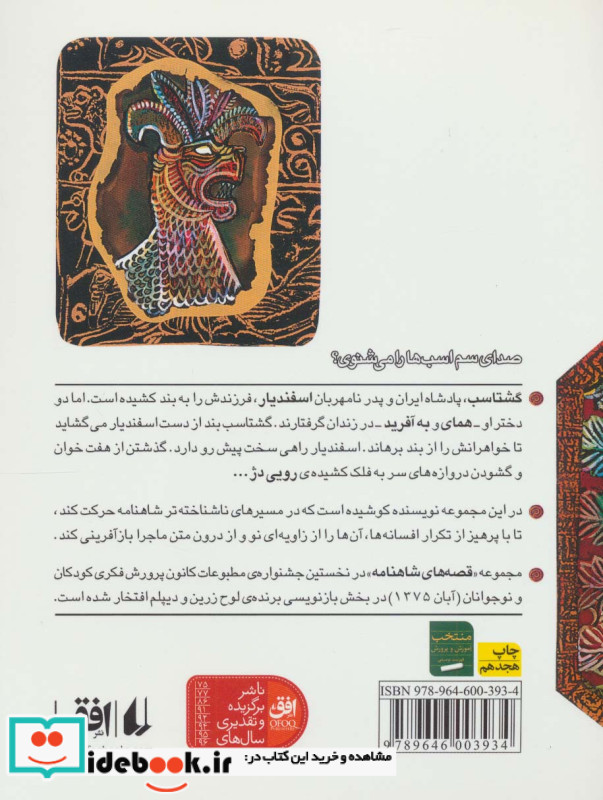 صدای سم اسب‌ها را می‌شنوی؟
گشتاسب، پادشاه ایران و پدر نامهربان اسفندیار، فرزندش را به بند کشیده است. اما دو
دختر او ـ همای و به آفرید ـ در زندان گرفتارند. گشتاسب بند از دست اسفندیار می گشاید
تا خواهرانش را از بند برهاند. اسفندیار راهی سخت پیش رو دارد. گذشتن از هفت خوان
و گشودن دروازه های سر به فلک کشیده‌ی رویی دژ...
در این مجموعه نویسنده کوشیده است که در مسیرهای ناشناخته تر شاهنامه حرکت کند،
تا با پرهیز از تکرار افسانه‌ها، آن‌ها را از زاویه‌ای نو و از درون متن ماجرا بازآفرینی کند.
مجموعه «قصه‌های شاهنامه» در نخستین جشنواره‌ی مطبوعات کانون پرورش فکری کودکان
و نوجوانان (آبان ۱۳۷۵) در بخش بازنویسی برنده‌ی لوح زرین و دیپلم افتخار شده است.
منتخب
آموزش و پرورش
چاپ
هجدهم
ناشر
برگزیده
و تقدیری
سال‌های
افق
OFOQ
نشر افق
ISBN 978-964-600-393-4
9 789646 003934
مشاهده و خرید این کتاب در:
idebook.ir